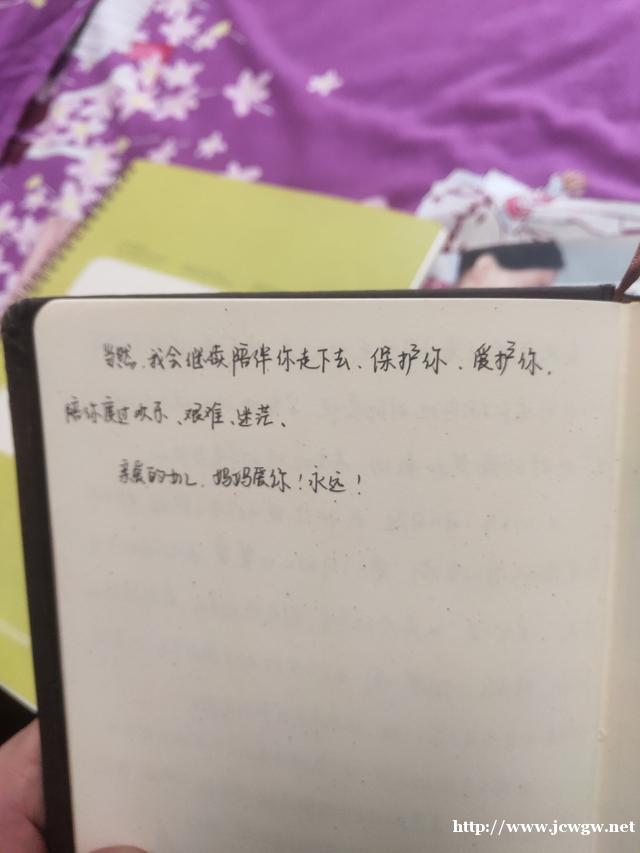 当然、我会继续陪伴你走下去、保护你、爱护你、
陪你度过欢乐、艰难、迷茫、
亲爱的女儿、妈妈爱你！永远！
http://www.jcwgw.net